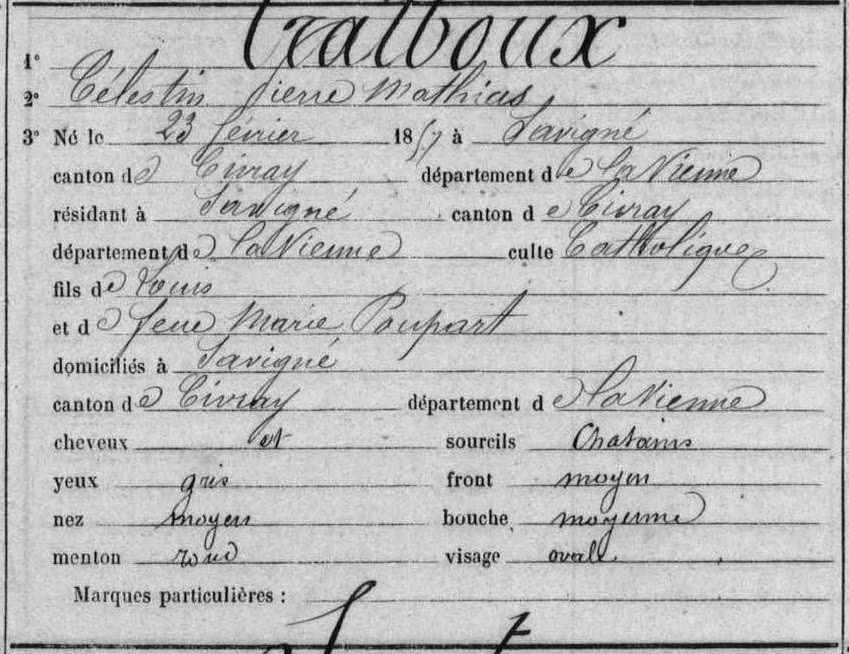 1° Tralboux
2° Célestin Pierre Mathias
3° Né le 23 février 1857 à Savigné
canton de Civray département de la Vienne
résidant à Savigné canton de Civray
département de la Vienne culte Catholique
fils de Louis
et de feue Marie Poupart
domiciliés à Savigné
canton de Civray département de la Vienne
cheveux et sourcils Chatains
yeux gris front moyen
nez moyen bouche moyenne
menton rond visage ovale
Marques particulières :